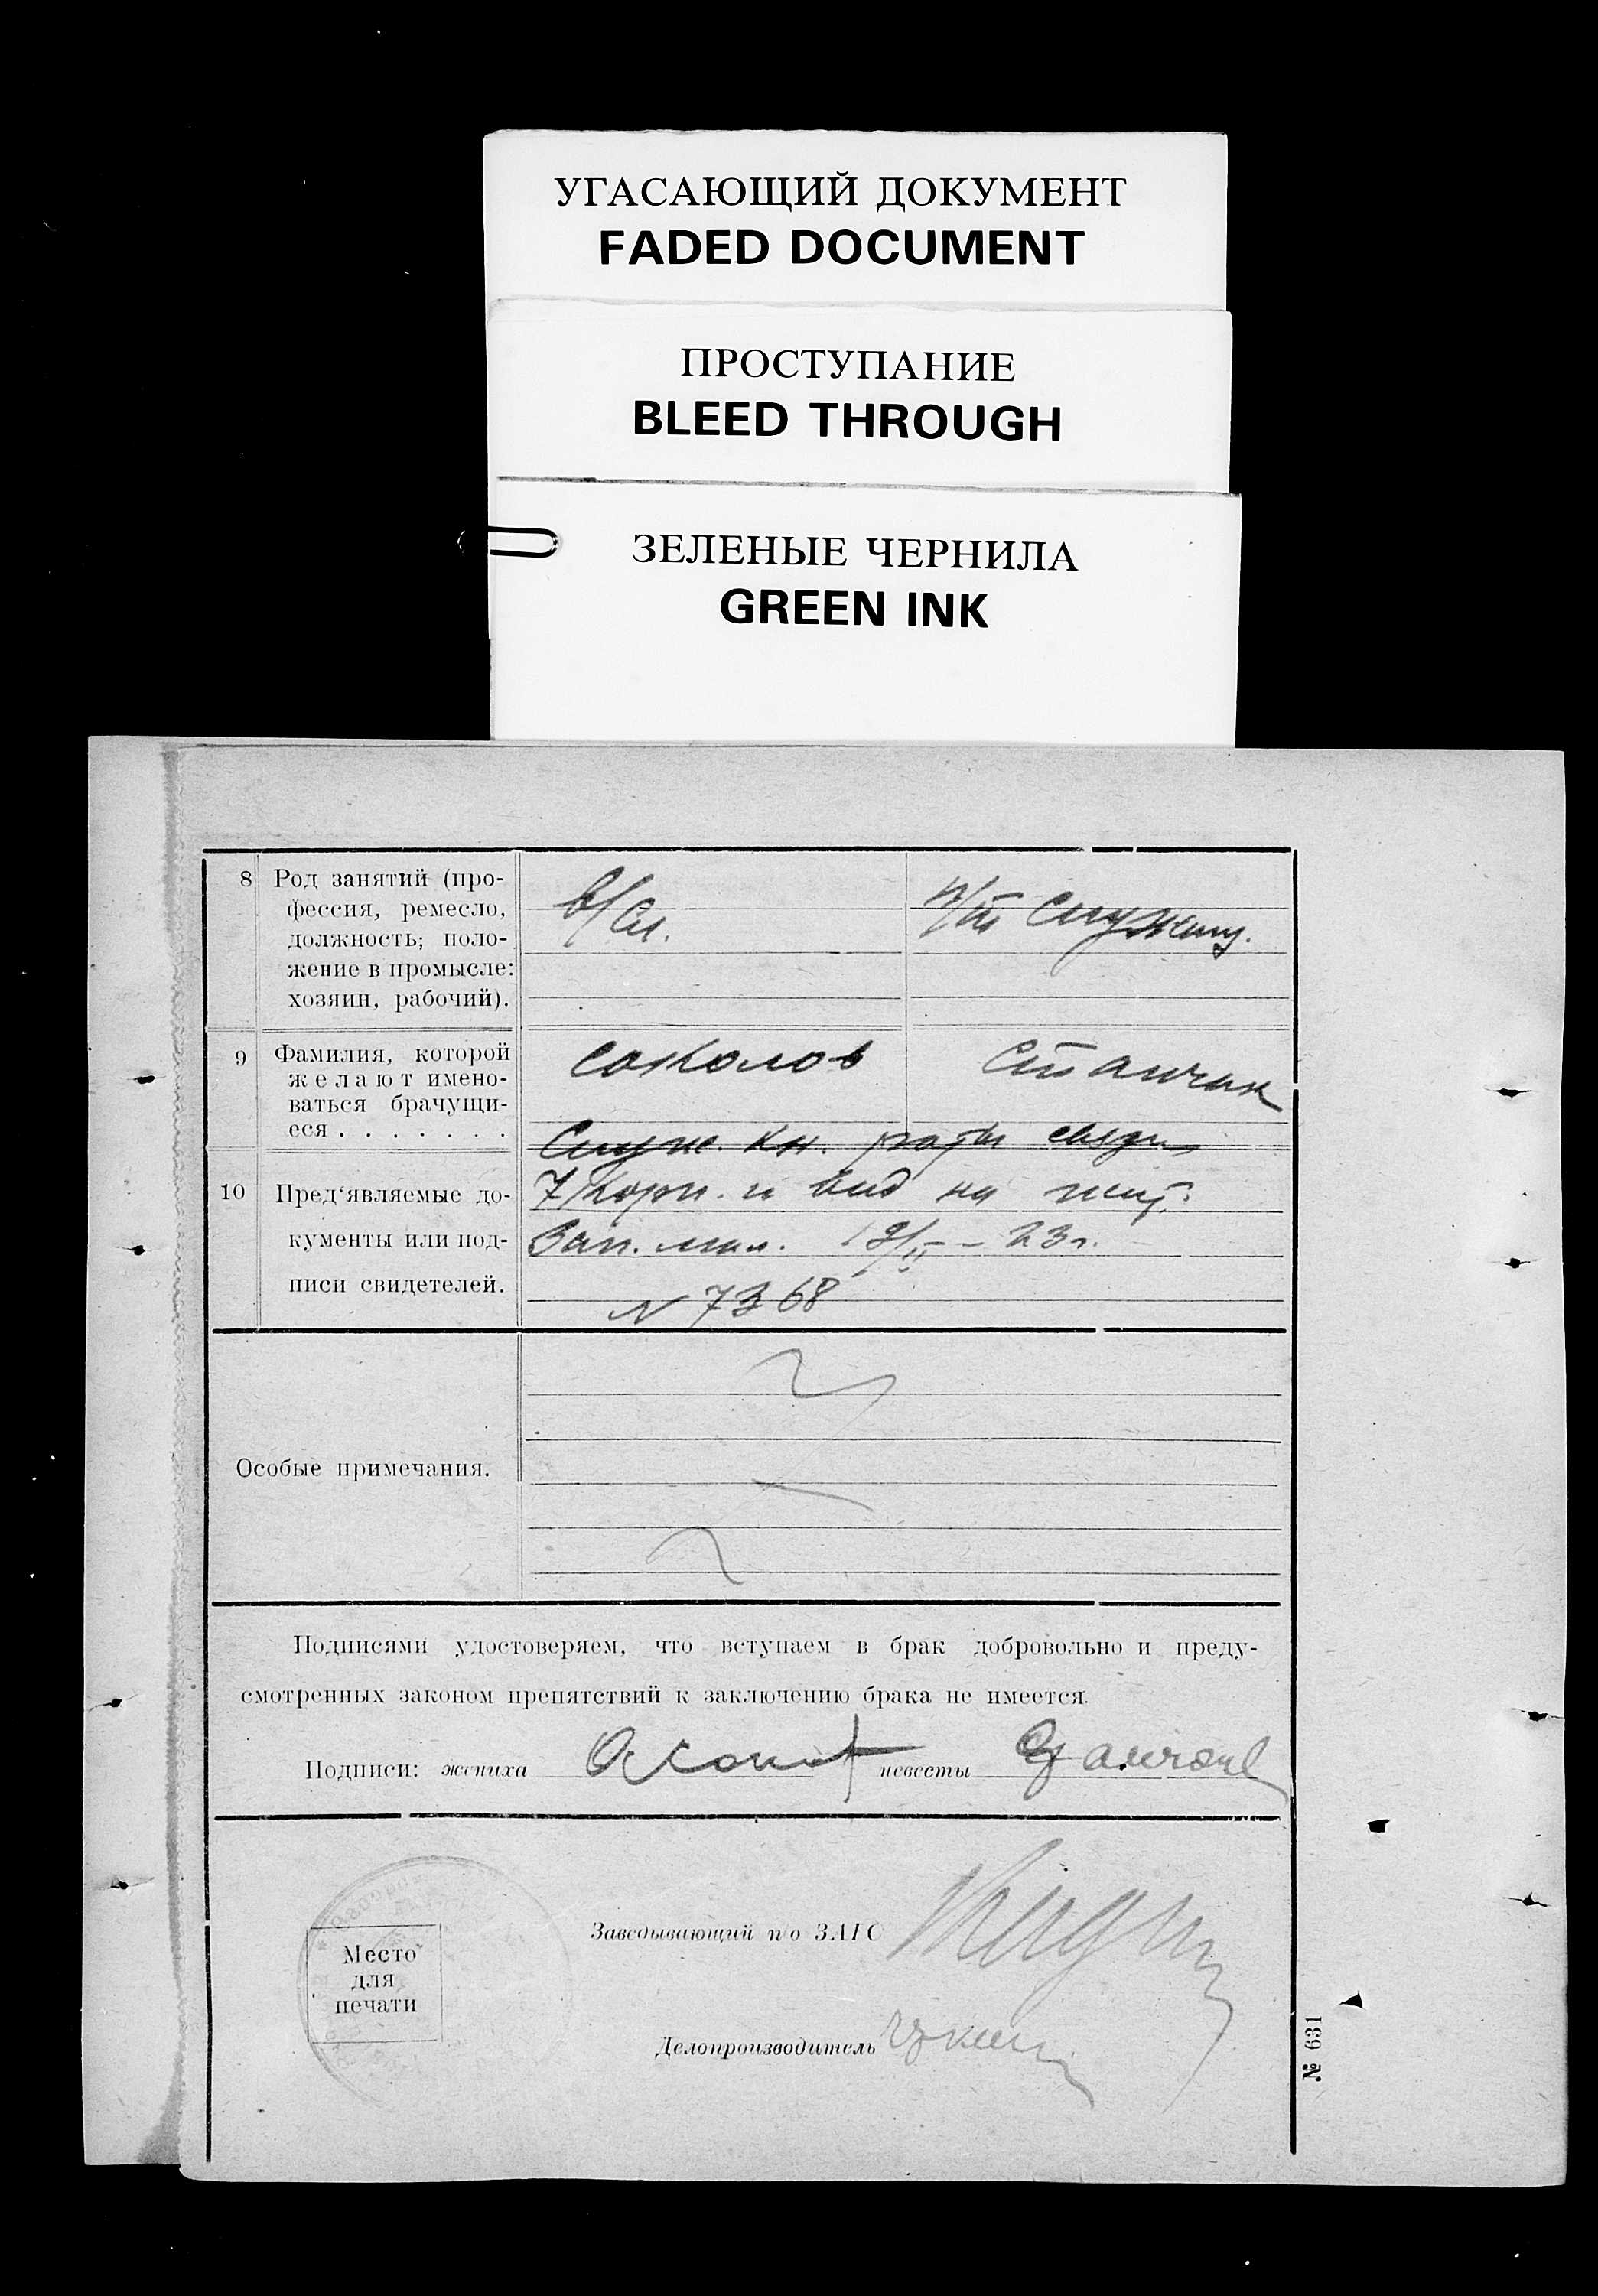 УГАСАЮЩИЙ ДОКУМЕНТ
FADED DOCUMENT
ПРОСТУПАНИЕ
BLEED THROUGH
ЗЕЛЕНЫЕ ЧЕРНИЛА
GREEN INK
8 Род занятий (про-
фессия, ремесло,
должность; поло-
жение в промысле:
хозяин, рабочий).
в/сл.
служащ.
9 Фамилия, которой
желают имено-
ваться брачущи-
еся . . . . . . .
Соколов
Станчик
Служ. кн. роты связи
10 Пред'являемые до-
кументы или под-
писи свидетелей.
7 корп. и вид на жит.
Зап. мил. 19/II - 23 г.
N 7368
Особые примечания.
Подписями удостоверяем, что вступаем в брак добровольно и преду-
смотренных законом препятствий к заключению брака не имеется.
Подписи: жениха невесты
Заведывающий п/о ЗАГС
Место
для
печати
Делопроизводитель
№ 631